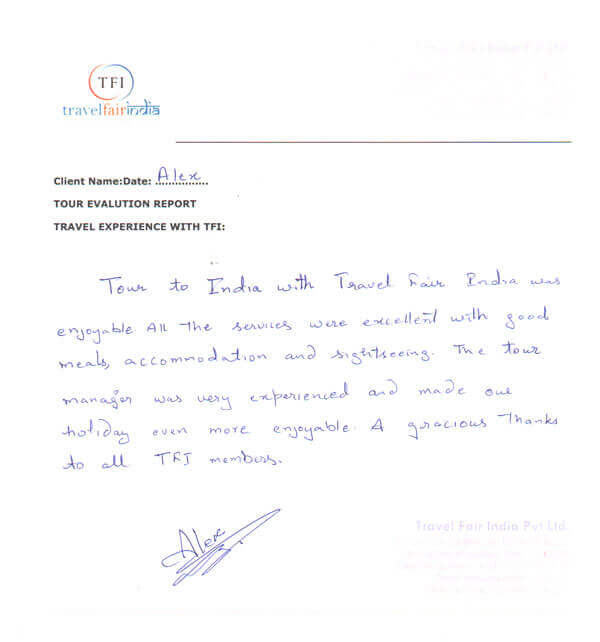 TFI
travelfairindia
Client Name:Date: Alex
TOUR EVALUTION REPORT
TRAVEL EXPERIENCE WITH TFI:
Tour to India with Travel Fair India was
enjoyable All the services were excellent with good
meals, accommodation and sightseeing. The tour
manager was very experienced and made our
holiday even more enjoyable. A gracious Thanks
to all TFI members.
Alex
Travel Fair India Pvt Ltd.